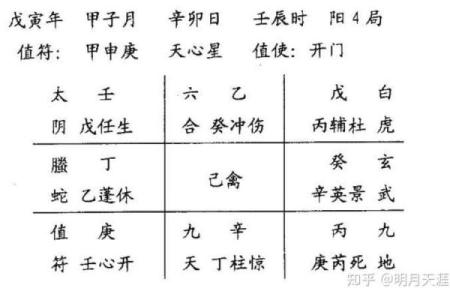 戊寅年 甲子月 辛卯日 壬辰时 阳4局
值符: 甲申庚 天心星 值使: 开门
太 壬 六 乙 戊 白
阴 戊任生 合 癸冲伤 丙辅杜 虎
螣 丁 己禽 癸 玄
蛇 乙蓬休 辛英景 武
值 庚 九 辛 丙 九
符 壬心开 天 丁柱惊 庚芮死 地
知乎 @明月天涯